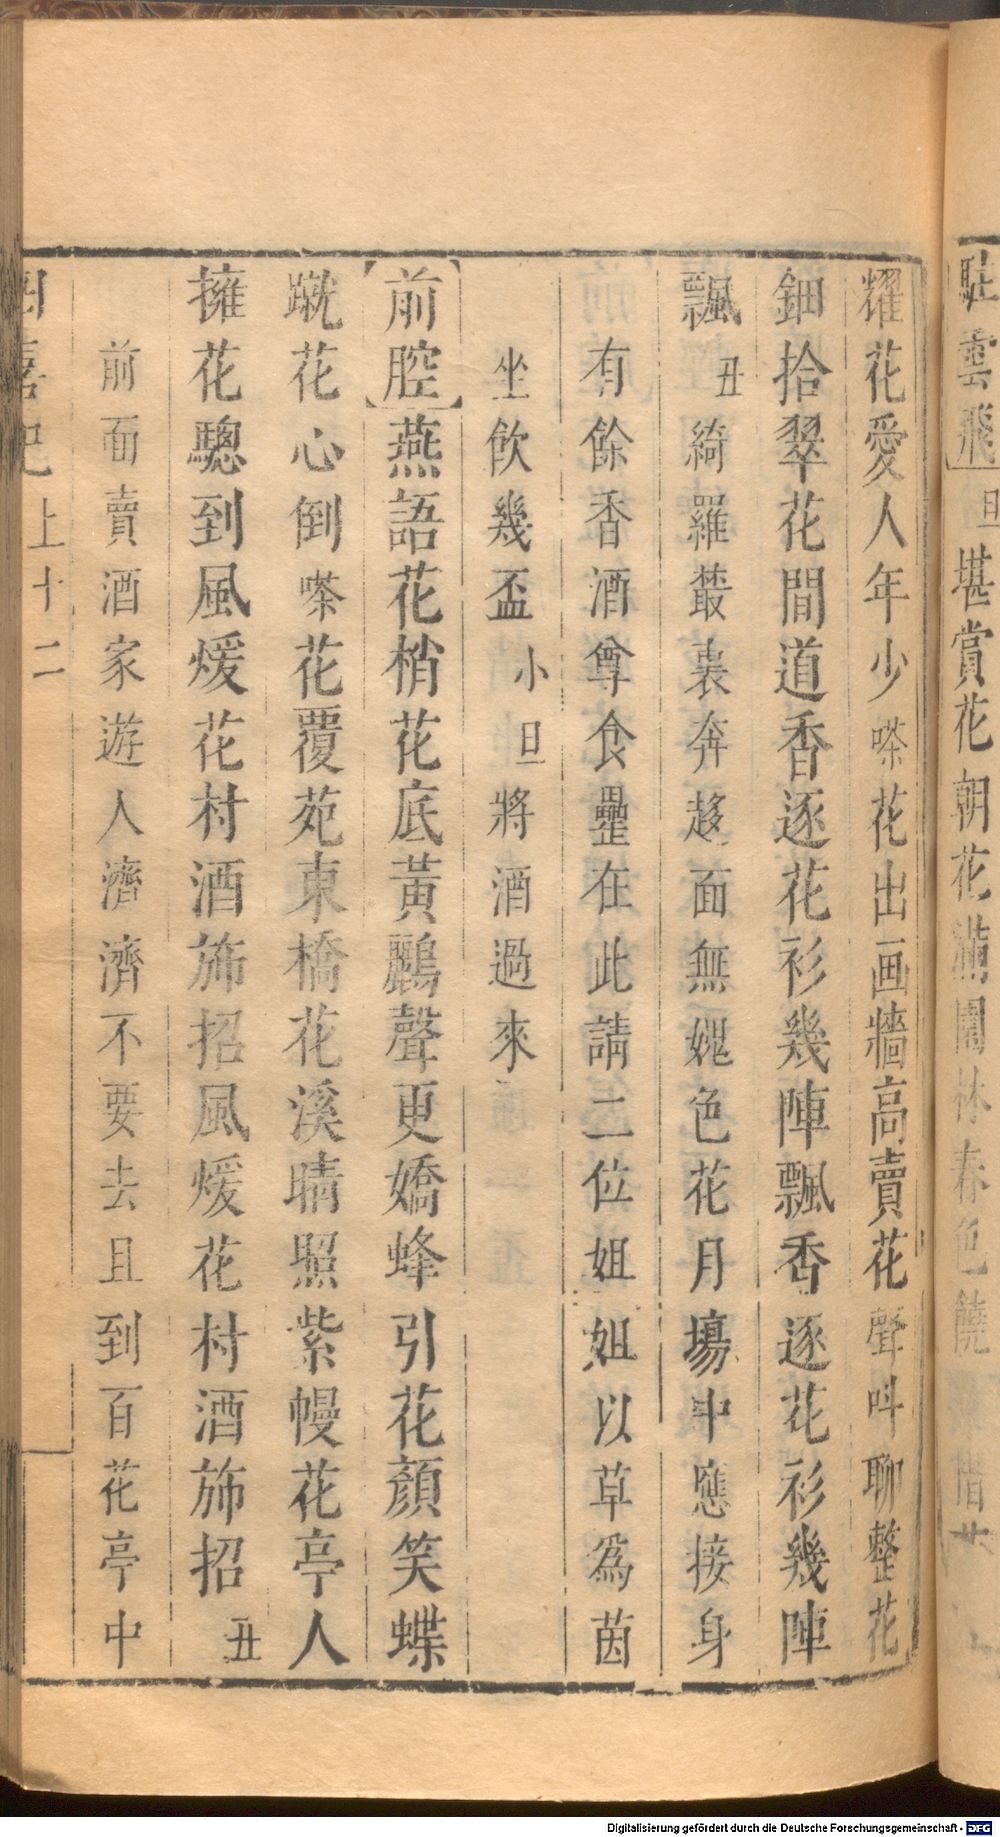 駐雲飛旦堪賞花朝花滿園林春色饒
耀花愛人年少嗏花出画牆高賣花聲呌聊整花
鈿拾翠花間道香逐花衫幾陣飄香逐花衫幾陣
飄丑綺羅叢裏奔趍面無媿色花月塲中應接身
有餘香酒尊食罍在此請二位姐姐以草爲茵
坐飲幾盃小旦將酒過來
前腔燕語花梢花底黃鸝聲更嬌蜂引花顏笑蝶
蹴花心倒嗏花覆苑東橋花溪晴照紫幔花亭人
擁花驄到風煖花村酒斾招風煖花村酒斾招丑
前面賣酒家遊人濟濟不要去且到百花亭中
四喜記上十二
Digitalisierung gefördert durch die Deutsche Forschungsgemeinschaft - DFG